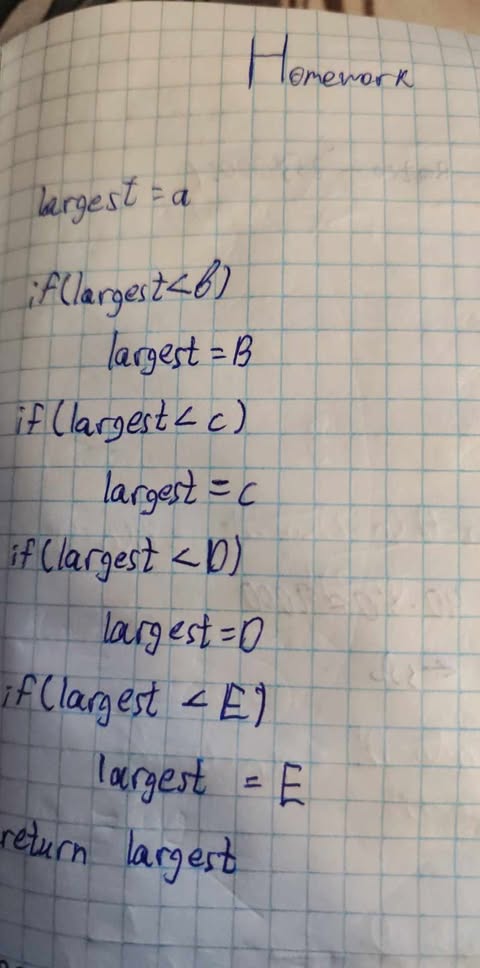 Homework
largest = a
if(largest<B)
largest = B
if(largest < c)
largest = c
if(largest < D)
largest = D
if(largest < E)
largest = E
return largest